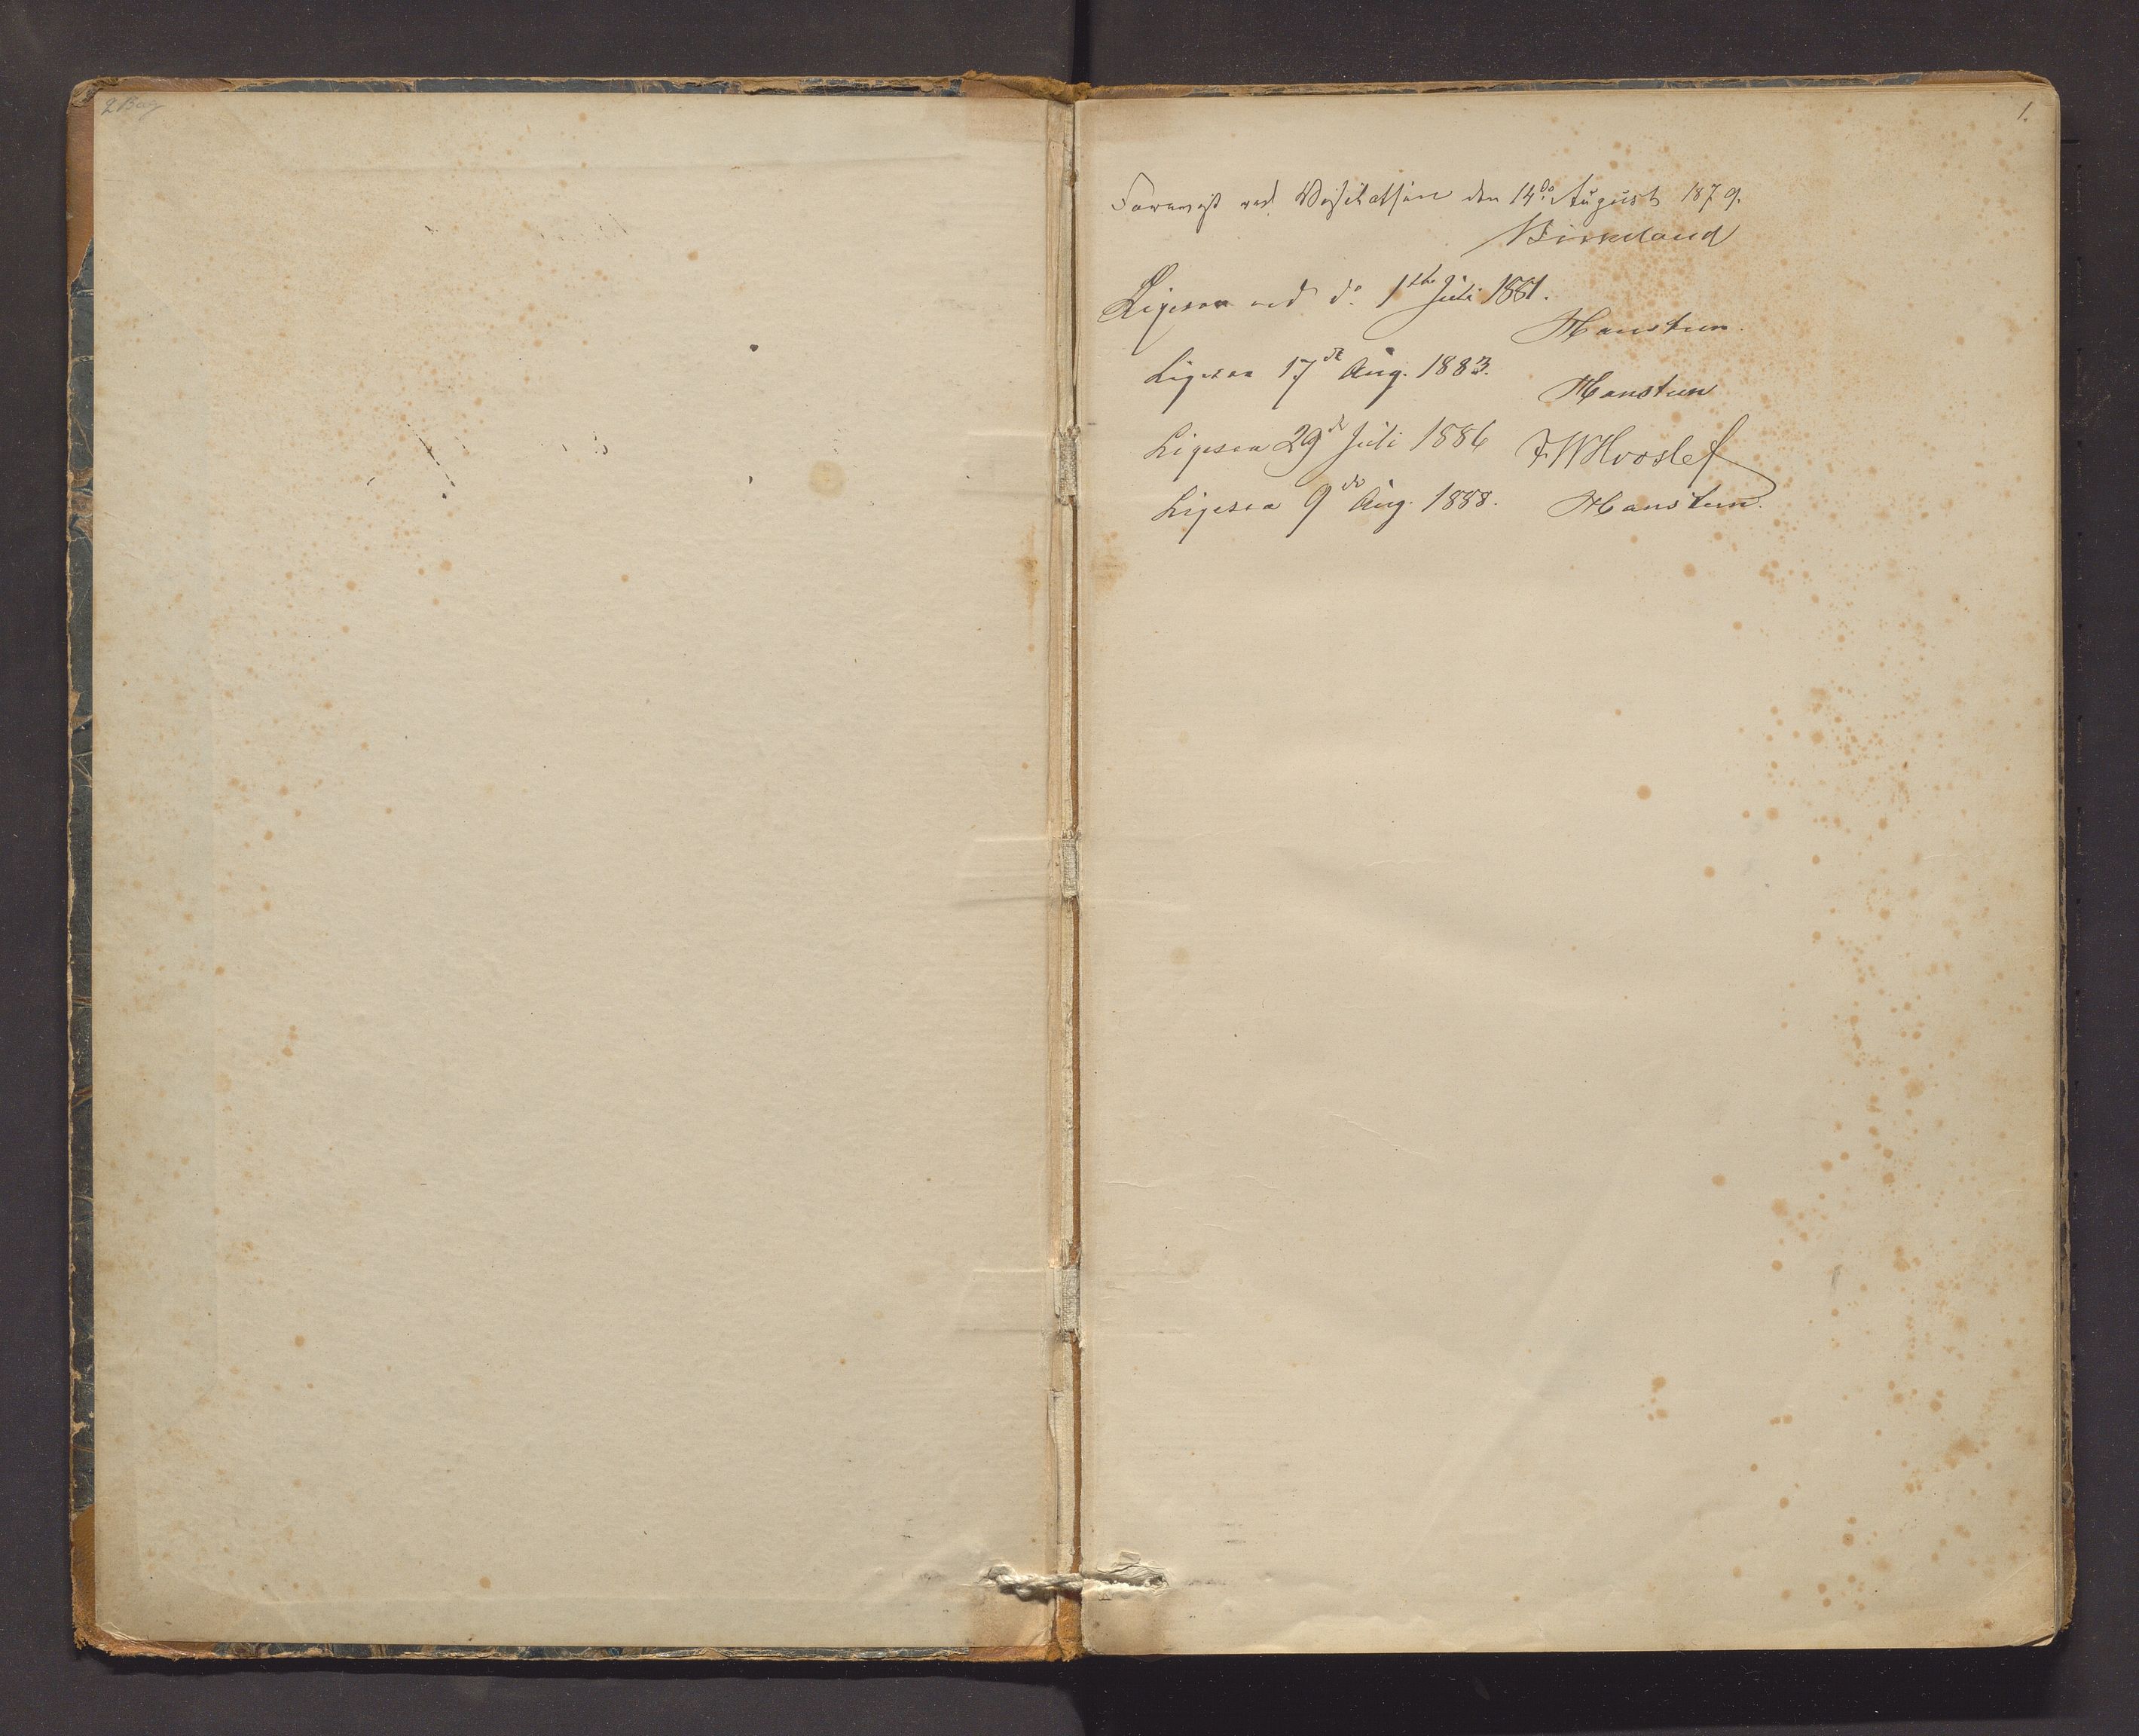 1.
Forevist ved Visitatsen den 14de August 1879.
Birkeland
Ligesaa ved do. 1ste Juli 1881.
Hanstun.
Ligesaa 17de Aug. 1883.
Hanstun
Ligesaa 29de Juli 1886 F. W. Hvoslef
Ligesaa 9de Aug. 1888. Hanstun.